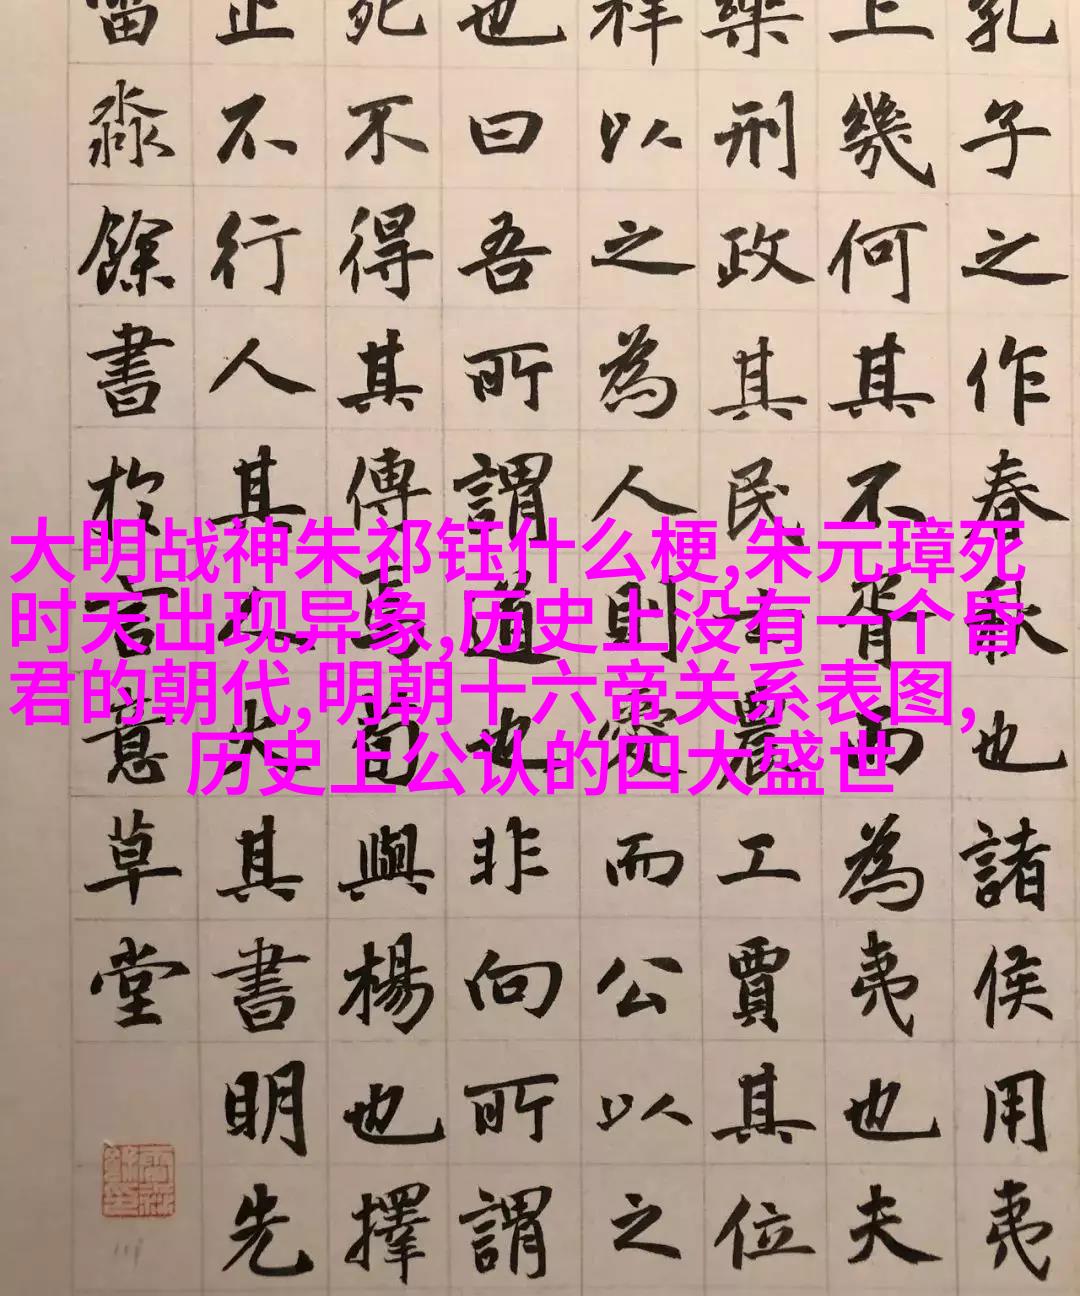 孔子之作春秋也諸侯用夷
上幾何其不胥而為夷也夫
樂刑政其民士農工賈其位
祥以之為人則愛而公以之
也曰吾所謂道也非向所謂
死不得其傳焉荀與楊也擇
止不行人其人火其書明先
淼餘書於言意草堂
大明战神朱祁钰什么梗,朱元璋死
时天出现异象,历史上没有一个昏
君的朝代,明朝十六帝关系表图,
历史上公认的四大盛世